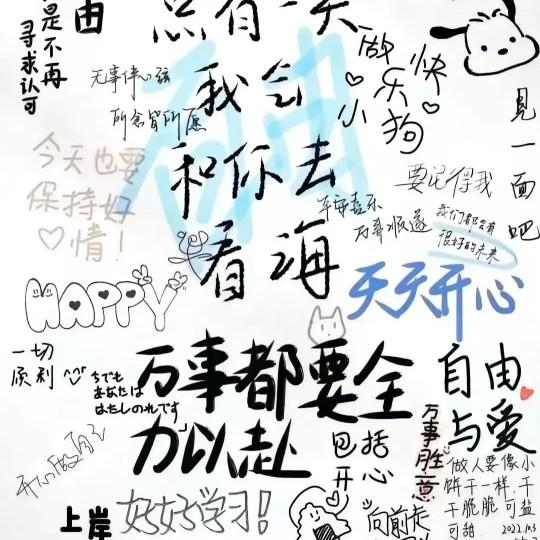 是不再
寻求认可
由
总有一天
我会
和你去
看海
做
快
乐
小
狗
无事绊心弦
所念皆所愿
今天也要
保持好
♡情！
見一面吧
要记得我
平安喜乐
万事顺遂
我们都会有
很好的未来
HAPPY
天天开心
一切
顺利
万事都要全
力以赴
包括
开心
自由
与爱
万事胜意
开心做自己
上岸
好好学习！
向前走
做人要像小
饼干一样，干
干脆脆，可盐
可甜。2022.10.3